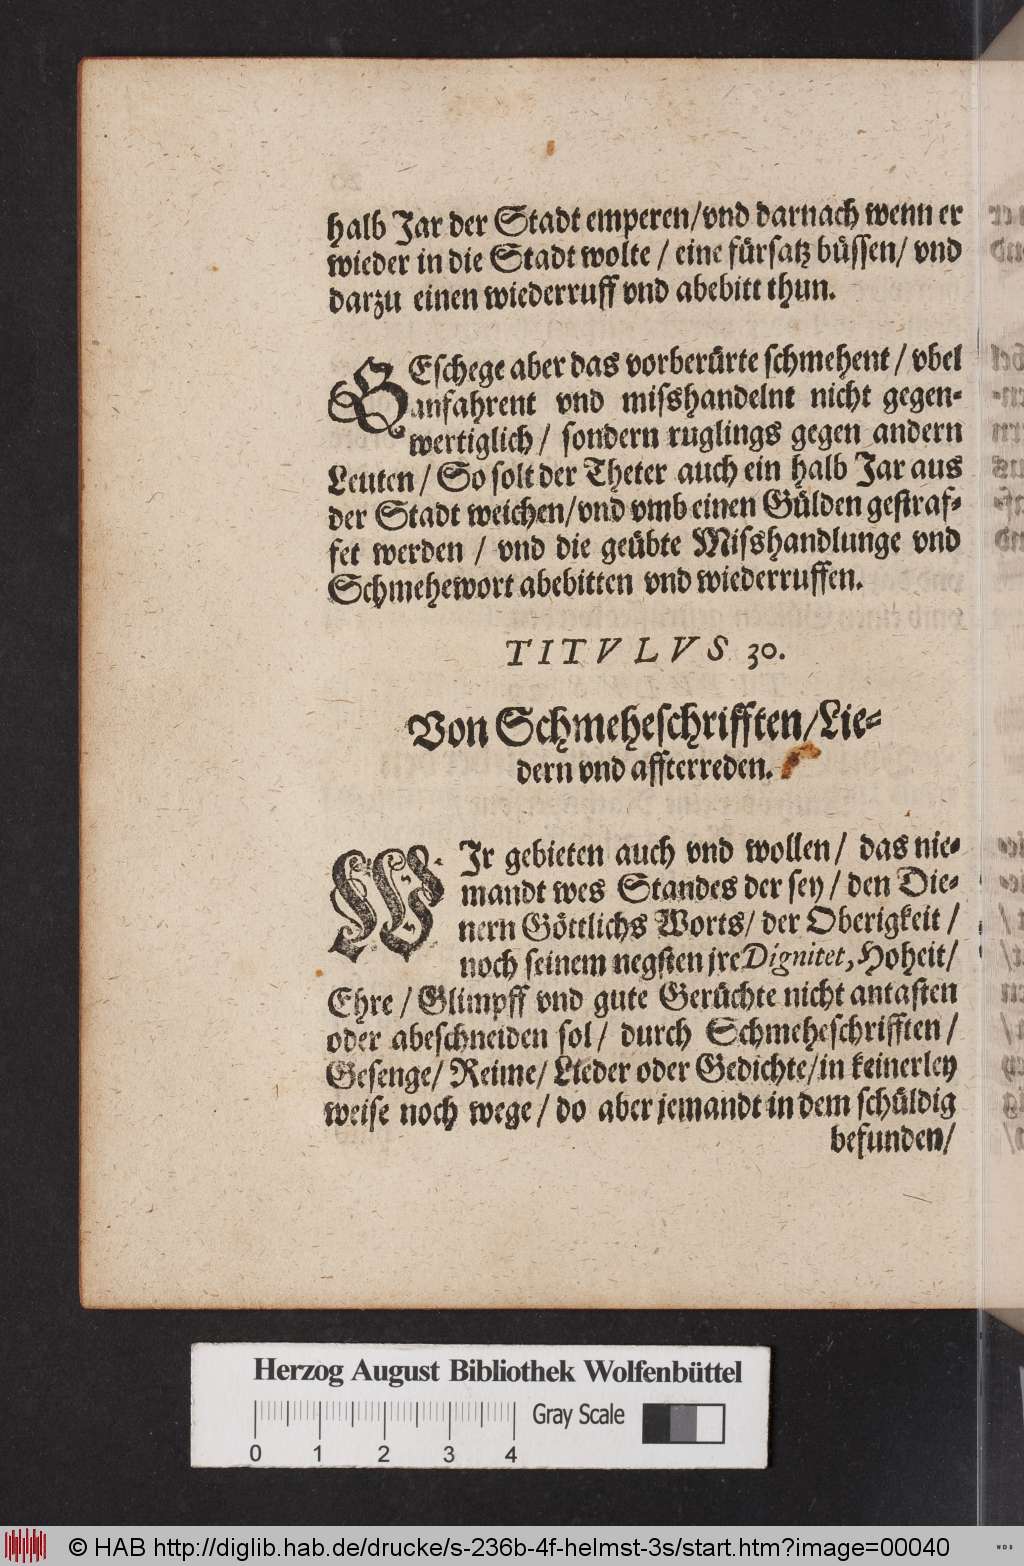 halb Jar der Stadt emperen/vnd darnach wenn er
wieder in die Stadt wolte / eine fürsatz büssen/ vnd
darzu einen wiederruff vnd abebitt thun.
GEschege aber das vorberürte schmehent / vbel
anfahrent vnd misshandelnt nicht gegen-
wertiglich / sondern ruglings gegen andern
Leuten / So solt der Theter auch ein halb Jar aus
der Stadt weichen/vnd vmb einen Gülden gestraf-
fet werden / vnd die geübte Misshandlunge vnd
Schmehewort abebitten vnd wiederruffen.
TITVLVS 30.
Von Schmeheschrifften/Lie-
dern vnd affterreden.
WIr gebieten auch vnd wollen/ das nie-
mandt wes Standes der sey / den Die-
nern Göttlichs Worts/ der Oberigkeit /
noch seinem negsten jre Dignitet, Hoheit/
Ehre / Glimpff vnd gute Gerüchte nicht antasten
oder abeschneiden sol/ durch Schmeheschrifften /
Gesenge/ Reime/ Lieder oder Gedichte/in keinerley
weise noch wege / do aber jemandt in dem schüldig
befunden/
Herzog August Bibliothek Wolfenbüttel
Gray Scale
0 1 2 3 4
© HAB http://diglib.hab.de/drucke/s-236b-4f-helmst-3s/start.htm?image=00040